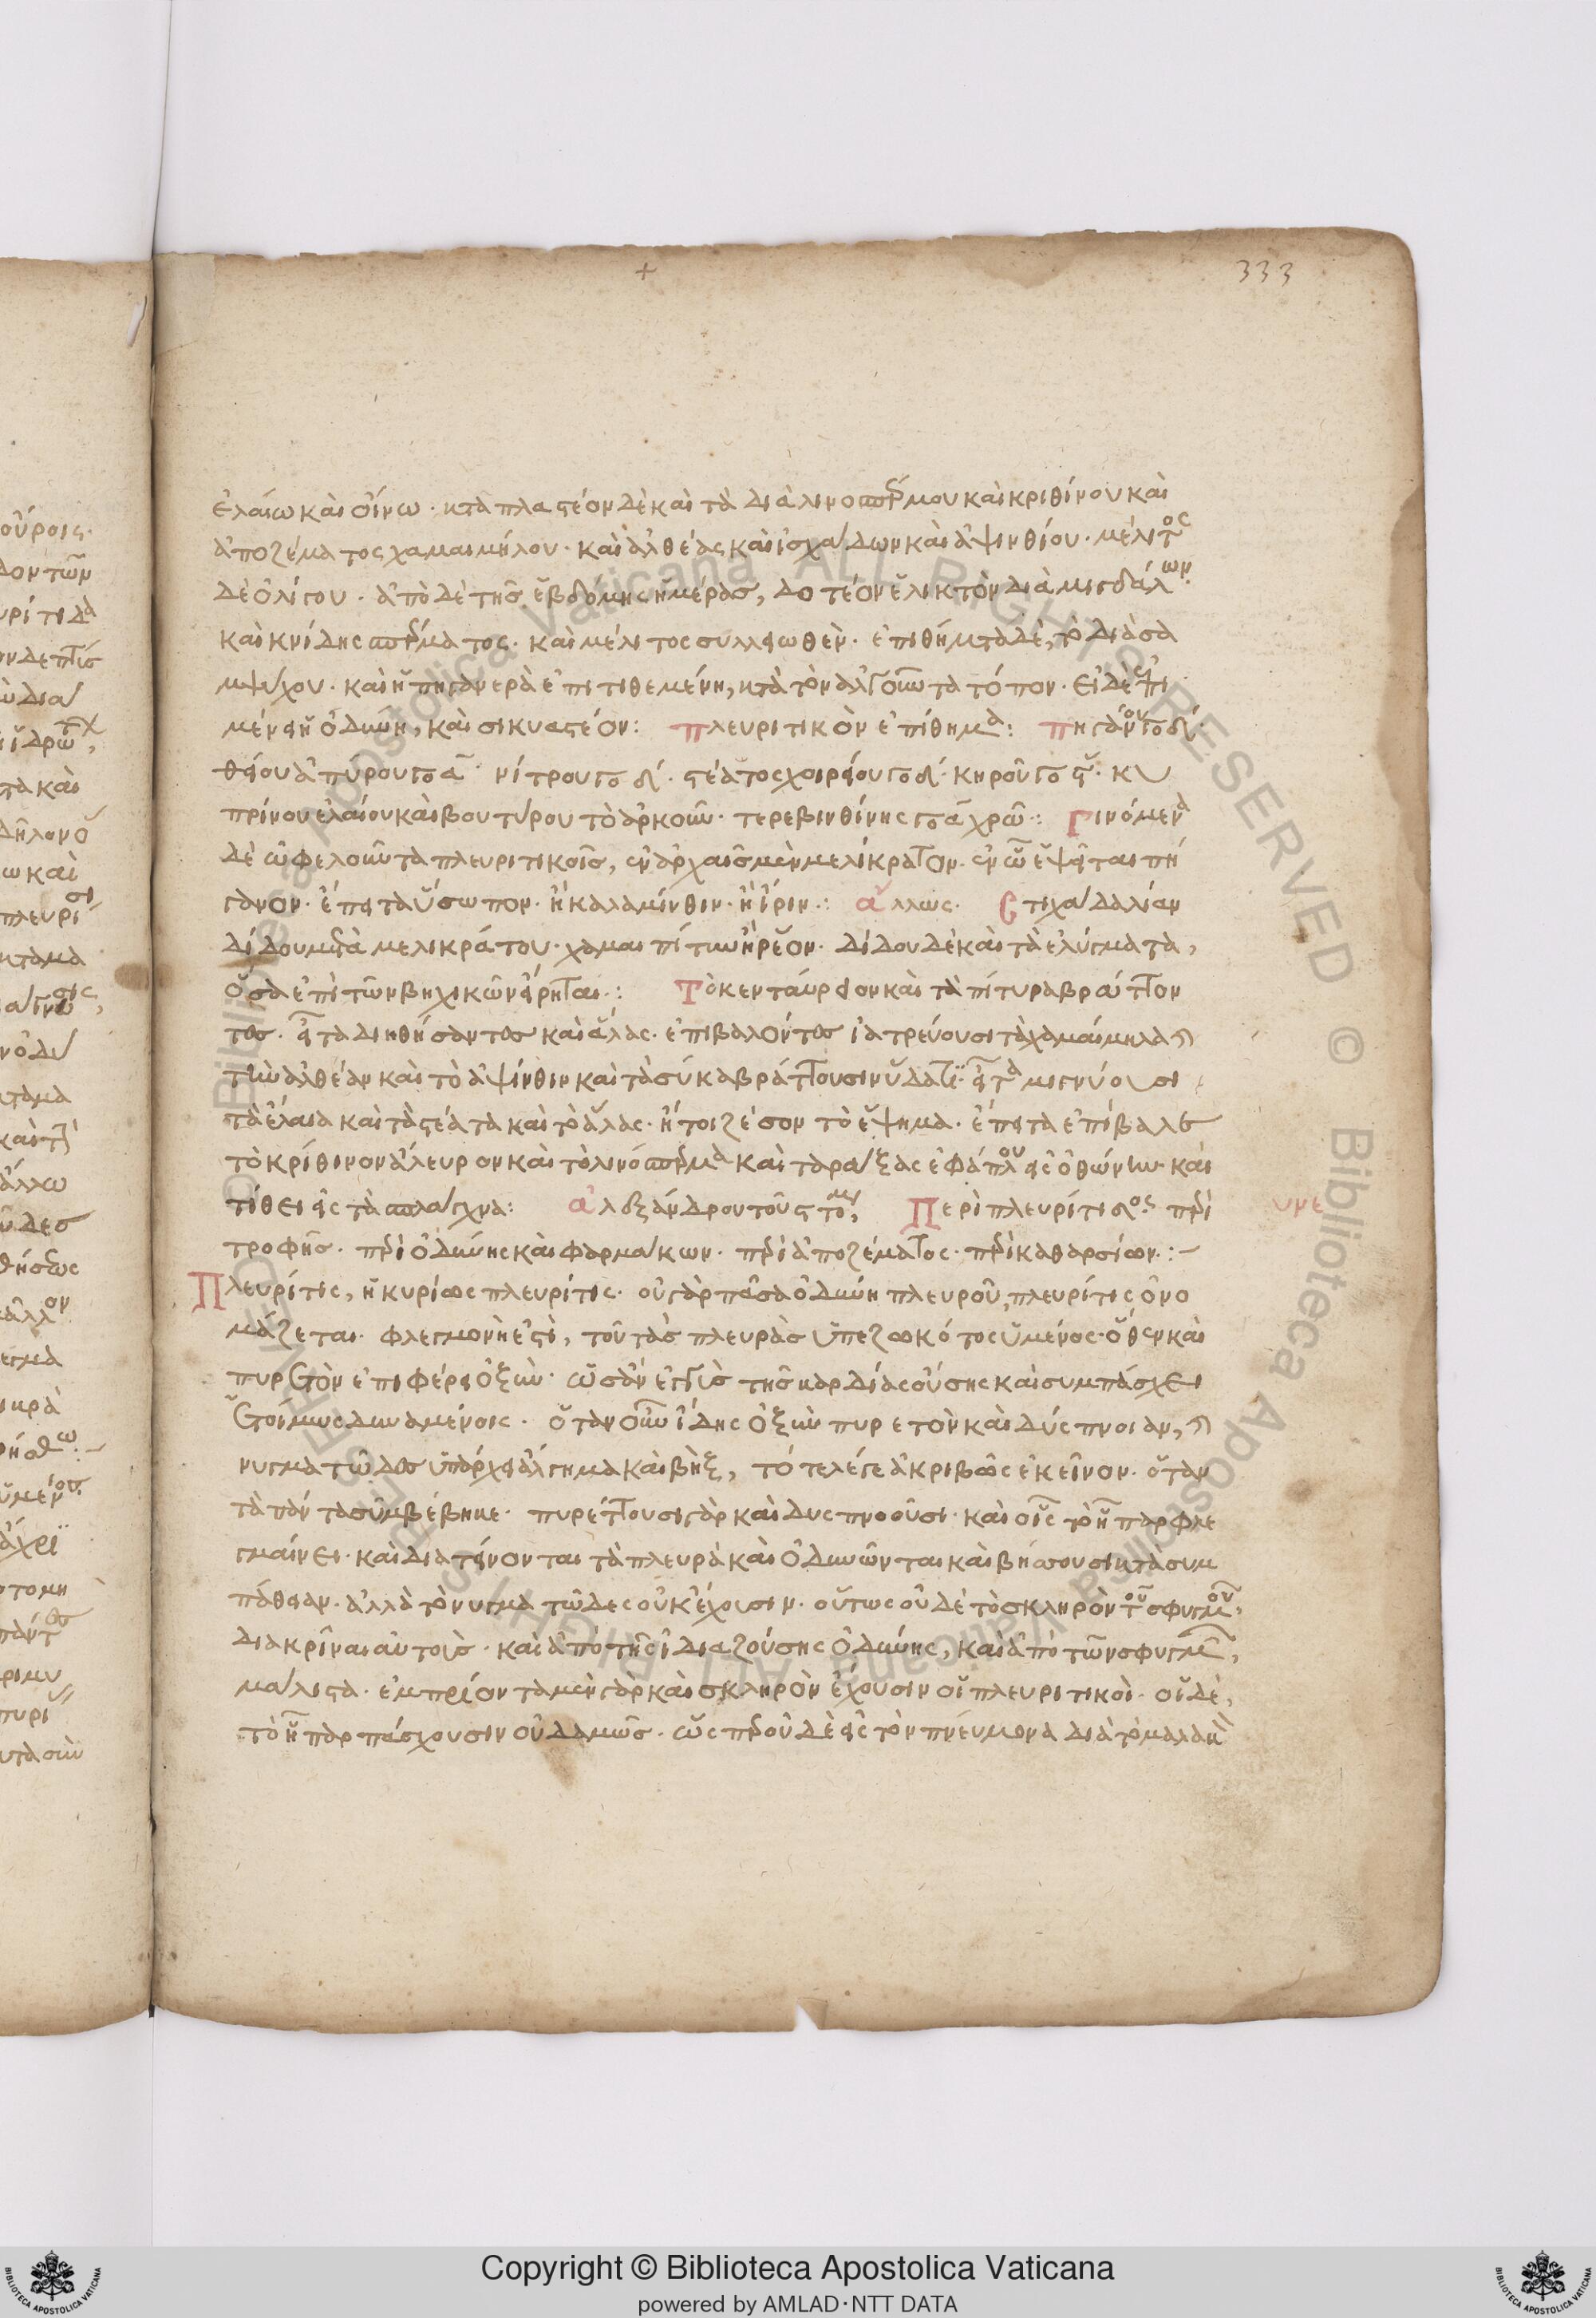 333
ἐλαίω καὶ οἴνω · κτὰ πλαστέον δὲ καὶ τὰ διὰ λινοσπέρμου καὶ κριθίνου καὶ
ἀποζέματος χαμαιμήλου · καὶ ἀλθέας καὶ ἰσχάδων καὶ ἀψινθίου · μέλιτος
δὲ ὀλίγου · ἀπὸ δὲ τῆς ἑβδόμης ἡμέρας, δοτέον ἐλικτὸν διὰ μιγδάλων
καὶ κνίδης σπέρματος · καὶ μέλιτος συλλειωθὲν · ἐπιθήματα δὲ, τὸ διὰ σα
μψύχου · καὶ ἡ πηγανερὰ ἐπιτιθεμένη, κατὰ τὸν ἀλγοῦντα τόπον · εἰ δὲ ἐπι
μένει ἡ ὀδύνη, καὶ σικυαστέον: πλευριτικὸν ἐπίθημα: πηγάνου
θείου ἀπύρου · νίτρου · στέατος χοιρείου · κηροῦ · κυ
πρίνου ἐλαίου καὶ βουτύρου τὸ ἀρκοῦν · τερεβινθίνης χρῶ: Γινόμενα
δὲ ὠφελοῦντα πλευριτικοῖς, ἐν ἀρχαῖς μὲν μελίκρατον · ἐν ὧ ἕψεται πή
γανον · ἔπειτα ὕσωπον · ἢ καλαμίνθιν · ἢ ἶριν: ἄλλως · Στιχάδα λίαν
δίδου μετὰ μελικράτου · χαμαιπίτυν ἢ · δίδου δὲ καὶ τὰ ἐλύγματα,
ὅσα ἐπὶ τῶν βηχικῶν εἴρηται: Τὸ κενταύρειον καὶ τὰ πίτυρα βράττον
τες · εἶτα διηθήσαντες καὶ ἅλας · ἐπιβαλόντες ἰατρεύουσι τὰ χαμαίμηλα
τὴν ἀλθέαν καὶ τὸ ἀψίνθιν καὶ τὰ σύκα βράττουσιν ὕδατι · εἶτα μιγνύουσι
τὰ ἔλαια καὶ τὰ στέατα καὶ τὸ ἅλας · ἤτοι ζέσον τὸ ἕψημα · ἔπειτα ἐπίβαλε
τὸ κρίθινον ἄλευρον καὶ τὸ λινόσπερμα καὶ ταράξας ἐφάπλου εἰς ὀθώνιν · καὶ
τίθει εἰς τὰ σπλάγχνα: ἀλεξάνδρου τοῦ Περὶ πλευρίτιδος · περὶ
τροφῆς · περὶ ὀδύνης καὶ φαρμάκων · περὶ ἀποζέματος · περὶ καθαρσίων: –
Πλευρίτις, ἡ κυρίως πλευρίτις · οὐ γὰρ πᾶσα ὀδύνη πλευροῦ, πλευρίτις ὀνο
μάζεται · φλεγμονὴ ἐστὶ, τοῦ τὰς πλευρὰς ὑπεζωκότος ὑμένος · ὅθεν καὶ
πυρετὸν ἐπιφέρει ὀξὺν · ὡσὰν ἐγγὺς τῆς καρδίας οὔσης καὶ συμπάσχει
ἑτοίμως δυναμένοις · ὅταν οὖν ἴδης ὀξὺν πυρετὸν καὶ δύσπνοιαν,
νυγματῶδες ὑπάρχει ἄλγημα καὶ βὴξ, τό τε λέγε ἀκριβῶς ἐκεῖνον · ὅταν
τὰ πάντα συμβέβηκε · πυρέττουσι γὰρ καὶ δυσπνοοῦσι · καὶ οἷς τὸ ἧπαρ φλε
γμαίνει · καὶ διατείνονται τὰ πλευρὰ καὶ ὀδυνῶνται καὶ βήσσουσι κατὰ συμ
πάθειαν · ἀλλὰ τὸ νυγματῶδες οὐκ ἔχουσιν · οὕτως οὐδὲ τὸ σκληρὸν τοῦ σφυγμοῦ,
διακρῖναι αὐτοὺς · καὶ ἀπὸ τῆς ἰδιαζούσης ὀδύνης, καὶ ἀπὸ τῶν σφυγμῶν,
μάλιστα · ἐμπρίοντα μὲν γὰρ καὶ σκληρὸν ἔχουσιν οἱ πλευριτικοὶ · οἱ δὲ,
τὸ ἧπαρ πάσχουσιν οὐδαμῶς · ὥσπερ οὐδὲ εἰς τὸν πνεύμονα διὰ τὸ μαλακὸν
Copyright © Biblioteca Apostolica Vaticana
powered by AMLAD·NTT DATA